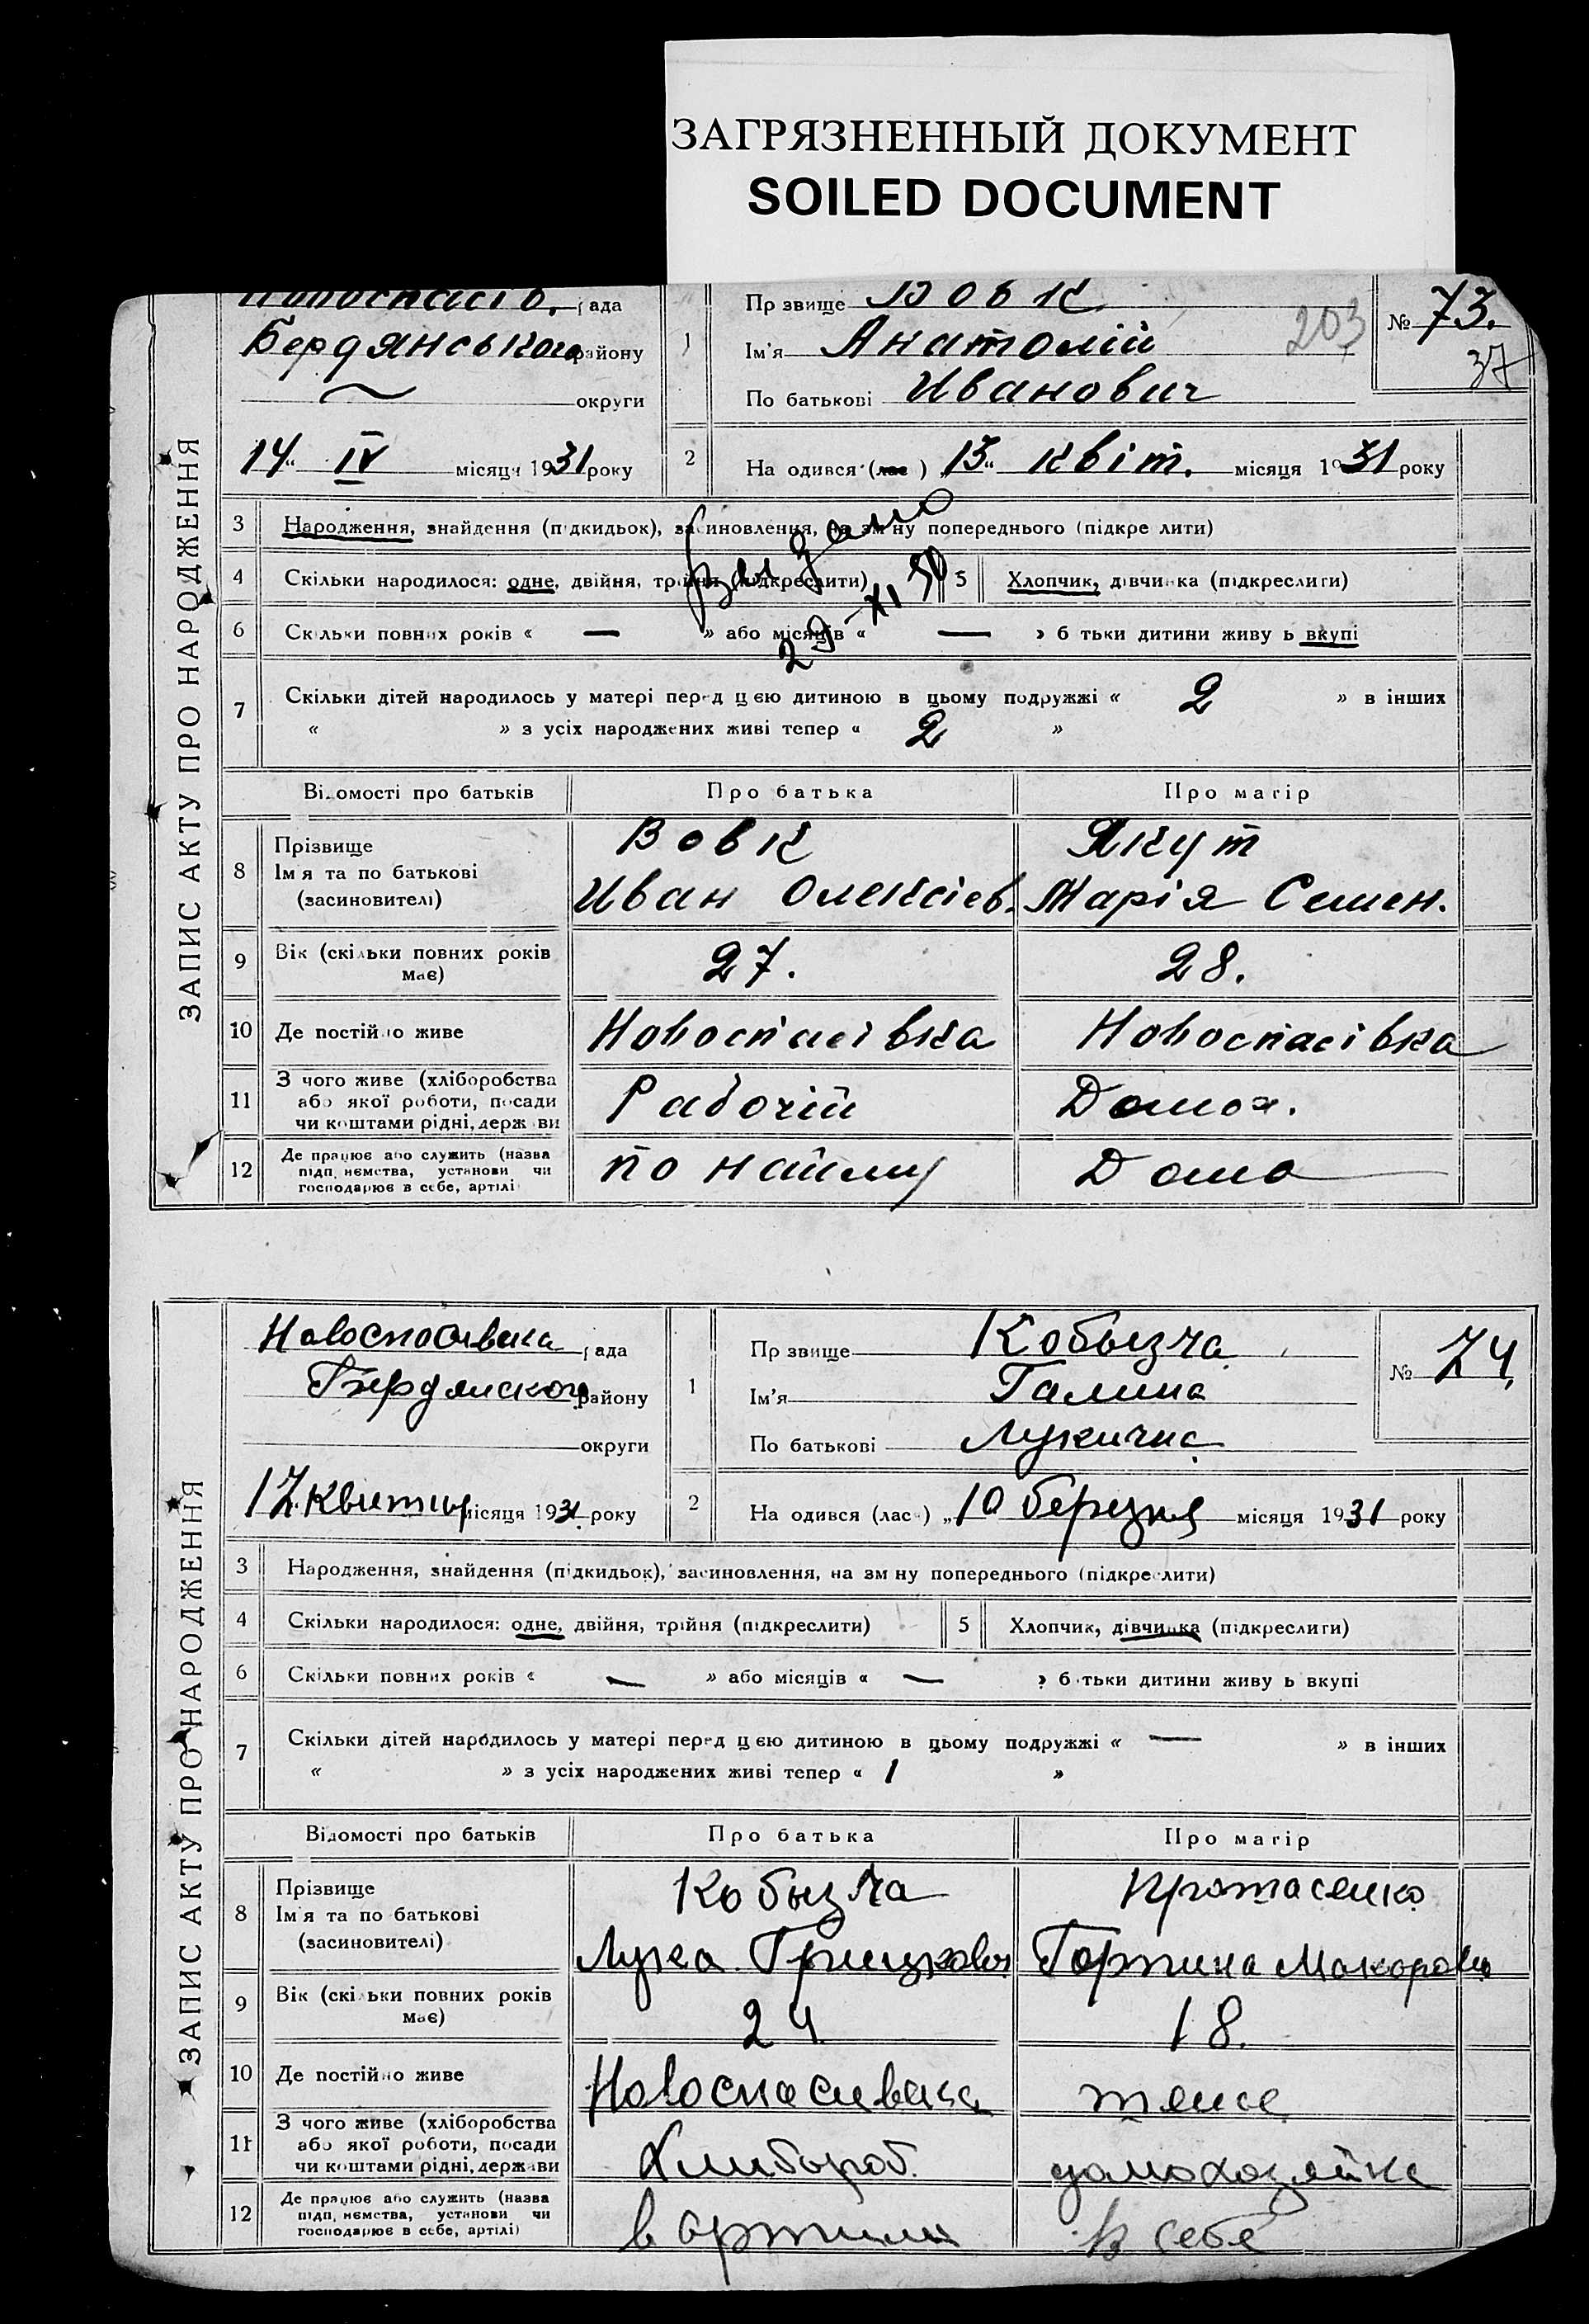 ЗАГРЯЗНЕННЫЙ ДОКУМЕНТ
SOILED DOCUMENT
ЗАПИС АКТУ ПРО НАРОДЖЕННЯ
Новоспасів. рада
Бердянського району
округи
14 " IV місяця 1931 року
1
Прізвище Вовк
Ім'я Анатолій
По батькові Иванович
203
№ 73.
37
2
На одився (лас ) „13" квіт. місяця 1931 року
3 Народження, знайдення (підкидьок), засиновлення, на зм ну попереднього (підкре лити)
Выдано
29-XI 50
4 Скільки народилося: одне, двійня, трійня (підкреслити)
5 Хлопчик, дівчинка (підкреслити)
6 Скільки повних років « — » або місяців « — » б тьки дитини живу ь вкупі
7 Скільки дітей народилось у матері перед цією дитиною в цьому подружжі « 2 » в інших
« » з усіх народжених живі тепер « 2 »
Відомості про батьків Про батька Про матір
8 Прізвище
Ім'я та по батькові
(засиновителі)
Вовк
Иван Олексіев.
Якут
Марія Семен.
9 Вік (скільки повних років має) 27. 28.
10 Де постійно живе Новоспасівка Новоспасівка
11 З чого живе (хліборобства
або якої роботи, посади
чи коштами рідні, держ ви
Рабочій Домох.
12 Де працює або служить (назва
підп иємства, установи чи
господарює в себе, артілі
по найму Дома
ЗАПИС АКТУ ПРО НАРОДЖЕННЯ
Новоспасивка рада
Бердянского району
округи
17 Квитня місяця 1931 року
1
Пр звище Кобызча
Ім'я Галина
По батькові Лукична
№ 74.
2
На одився (лас ) „10 березня місяця 1931 року
3 Народження, знайдення (підкидьок), засиновлення, на зм ну попереднього (підкреслити)
4 Скільки народилося: одне, двійня, трійня (підкреслити)
5 Хлопчик, дівчинка (підкреслити)
6 Скільки повних років « — » або місяців « — » б тьки дитини живу ь вкупі
7 Скільки дітей народилось у матері перед цією дитиною в цьому подружжі « — » в інших
« » з усіх народжених живі тепер « 1 »
Відомості про батьків Про батька Про матір
8 Прізвище
Ім'я та по батькові
(засиновителі)
Кобызча
Лука Грицкович
Протасенко
Горпина Макоровн
9 Вік (скільки повних років має) 24 18.
10 Де постійно живе Новоспасивка теже
11 З чого живе (хліборобства
або якої роботи, посади
чи коштами рідні, держави
Хлибороб. домохозяйка
12 Де працює або служить (назва
підп иємства, установи чи
господарює в себе, артілі)
в артили в себе